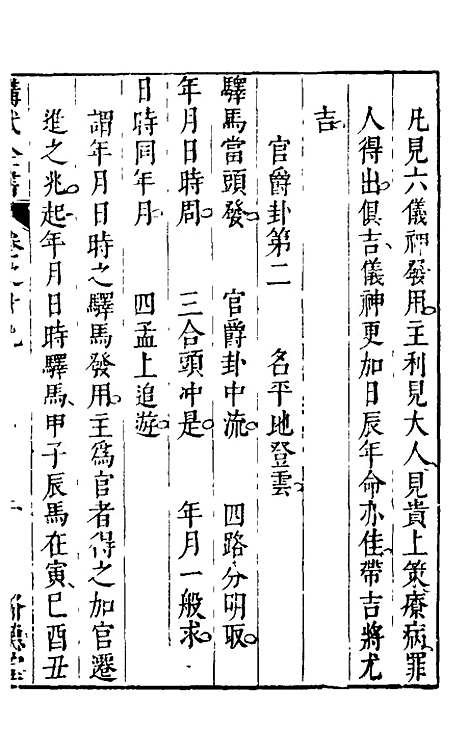 凡見六儀神發用主利見大人見貴上策療病罪
人得出俱吉儀神更加日辰年命亦佳帶吉將尤
吉
官爵卦第二 名平地登雲
驛馬當頭發 官爵卦中流 四路分明取
年月日時周 三合頭冲是 年月一般求
日時同年月 四孟上追遊
謂年月日時之驛馬發用主爲官者得之加官遷
進之兆起年月日時驛馬甲子辰馬在寅巳酉丑